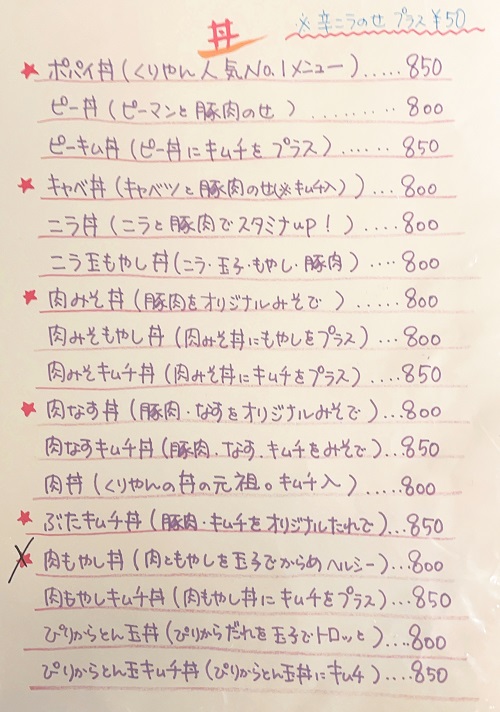 丼
※辛ニラのせ プラス¥50
★ポパイ丼(くりやん人気No.1メニュー).....850
ピー丼(ピーマンと豚肉のせ)..........800
ピーキム丼(ピー丼にキムチをプラス).....850
★キャベ丼(キャベツと豚肉のせ(※キムチ入))...800
ニラ丼(ニラと豚肉でスタミナup!)....800
ニラ玉もやし丼(ニラ・玉子・もやし・豚肉)....800
★肉みそ丼(豚肉をオリジナルみそで)....800
肉みそもやし丼(肉みそ丼にもやしをプラス)...800
肉みそキムチ丼(肉みそ丼にキムチをプラス)....850
★肉なす丼(豚肉・なすをオリジナルみそで)...800
肉なすキムチ丼(豚肉・なす・キムチをみそで)...850
肉丼(くりやんの丼の元祖。キムチ入).....800
★ぶたキムチ丼(豚肉・キムチをオリジナルたれで)...850
★肉もやし丼(肉ともやしを玉子でからめヘルシー)...800
肉もやしキムチ丼(肉もやし丼にキムチをプラス)...850
ぴりからとん玉丼(ぴりからだれを玉子でトロッと)...800
ぴりからとん玉キムチ丼(ぴりからとん玉丼にキムチ)...850